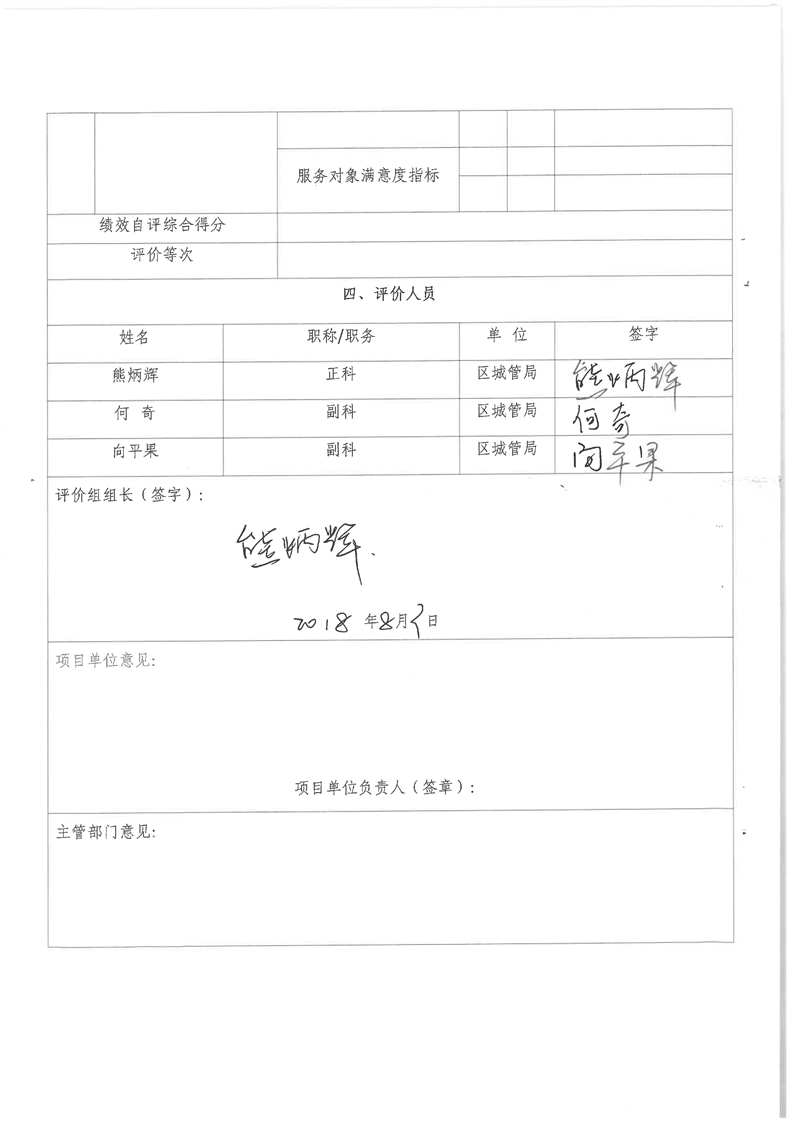 服务对象满意度指标
绩效自评综合得分
评价等次
四、评价人员
姓名 职称/职务 单 位 签字
熊炳辉 正科 区城管局 熊炳辉
何 奇 副科 区城管局 何奇
向平果 副科 区城管局 向平果
评价组组长（签字）:
熊炳辉.
2018年8月2日
项目单位意见:
项目单位负责人（签章）:
主管部门意见: